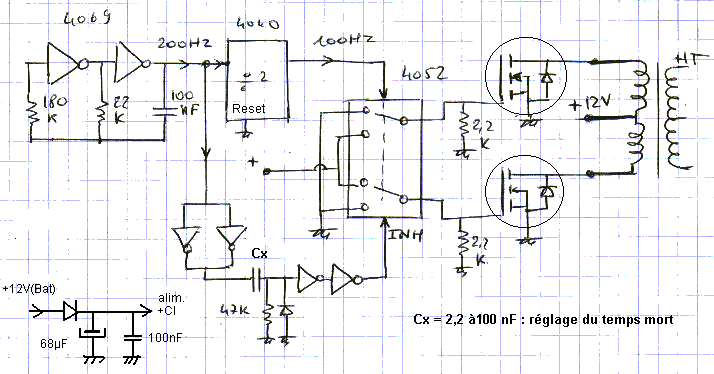 4069
4040
200HZ
100HZ
4052
HT
÷ 2
Reset
180
K
22
K
100
nF
+12V
2,2
K
+
INH
2,2
K
Cx
47K
+12V(Bat)
alim.
+CI
68µF
100nF
Cx = 2,2 à100 nF : réglage du temps mort